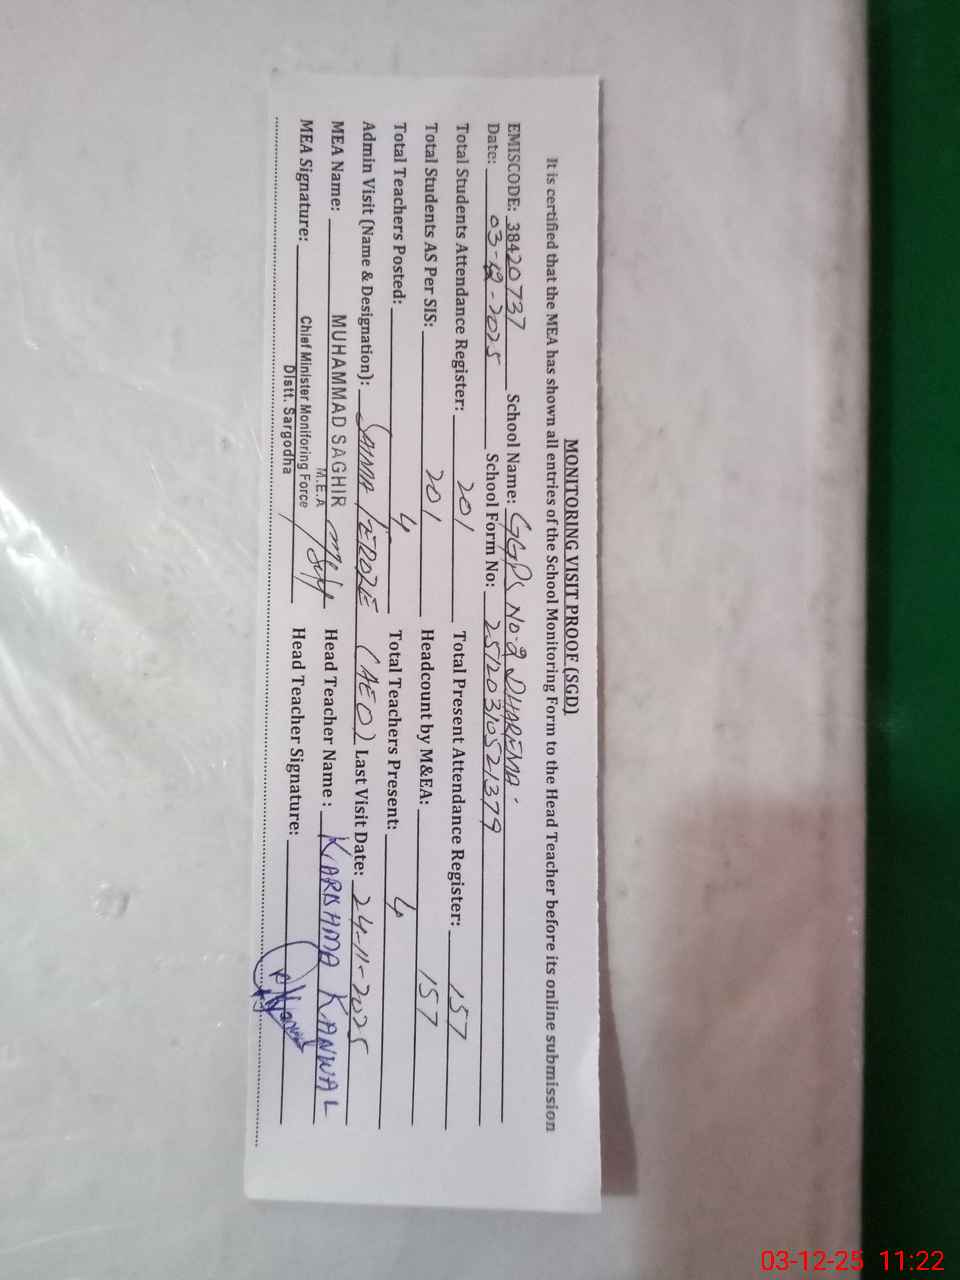 MONITORING VISIT PROOF (SGD)
It is certified that the MEA has shown all entries of the School Monitoring Form to the Head Teacher before its online submission
EMISCODE: 38420737 School Name: GGPS No-2 DHAREMA.
Date: 03-12-2025 School Form No: 25120310521379
Total Students Attendance Register: 201 Total Present Attendance Register: 157
Total Students AS Per SIS: 201 Headcount by M&EA: 157
Total Teachers Posted: 4 Total Teachers Present: 4
Admin Visit (Name & Designation): SAIMA FEROZE (AEO) Last Visit Date: 24-11-2025
MEA Name: MUHAMMAD SAGHIR Head Teacher Name: KARISHMA KANWAL
M.E.A
MEA Signature: Chief Minister Moniforing Force Head Teacher Signature:
Distt. Sargodha
03-12-25 11:22